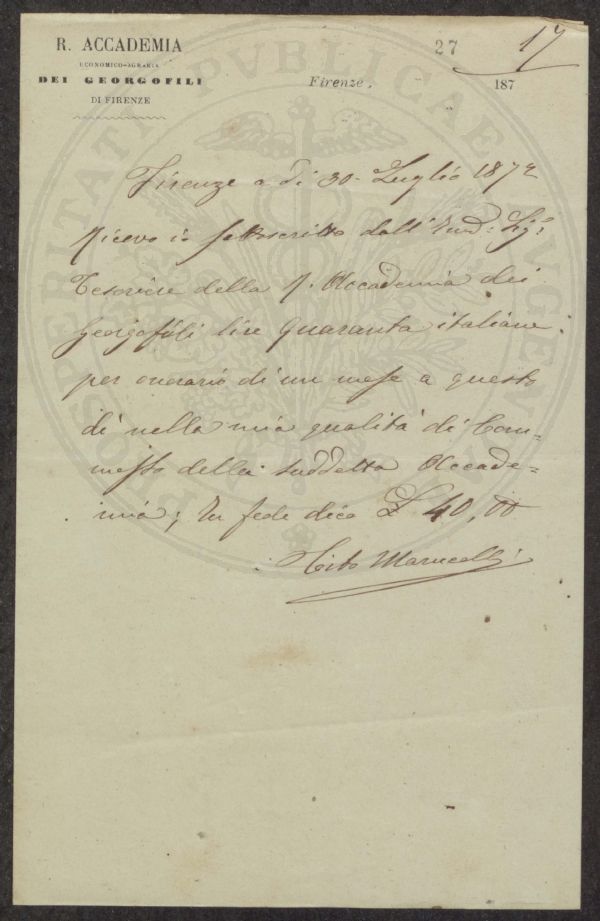 R. ACCADEMIA
ECONOMICO-AGRARIA
DEI GEORGOFILI
DI FIRENZE
27
17
Firenze, 187
Firenze a dì 30. Luglio 1872
Ricevo io sottoscritto dall' Sig:
Tesoriere della R. Accademia dei
Georgofili lire Quaranta italiane
per onorario di un mese a questo
dì nella mia qualità di Com=
messo della suddetta Accade=
mia; In fede dico £ 40,00
Tito Marucelli
PROSPERITATI PVBLICAE AVGENDAE